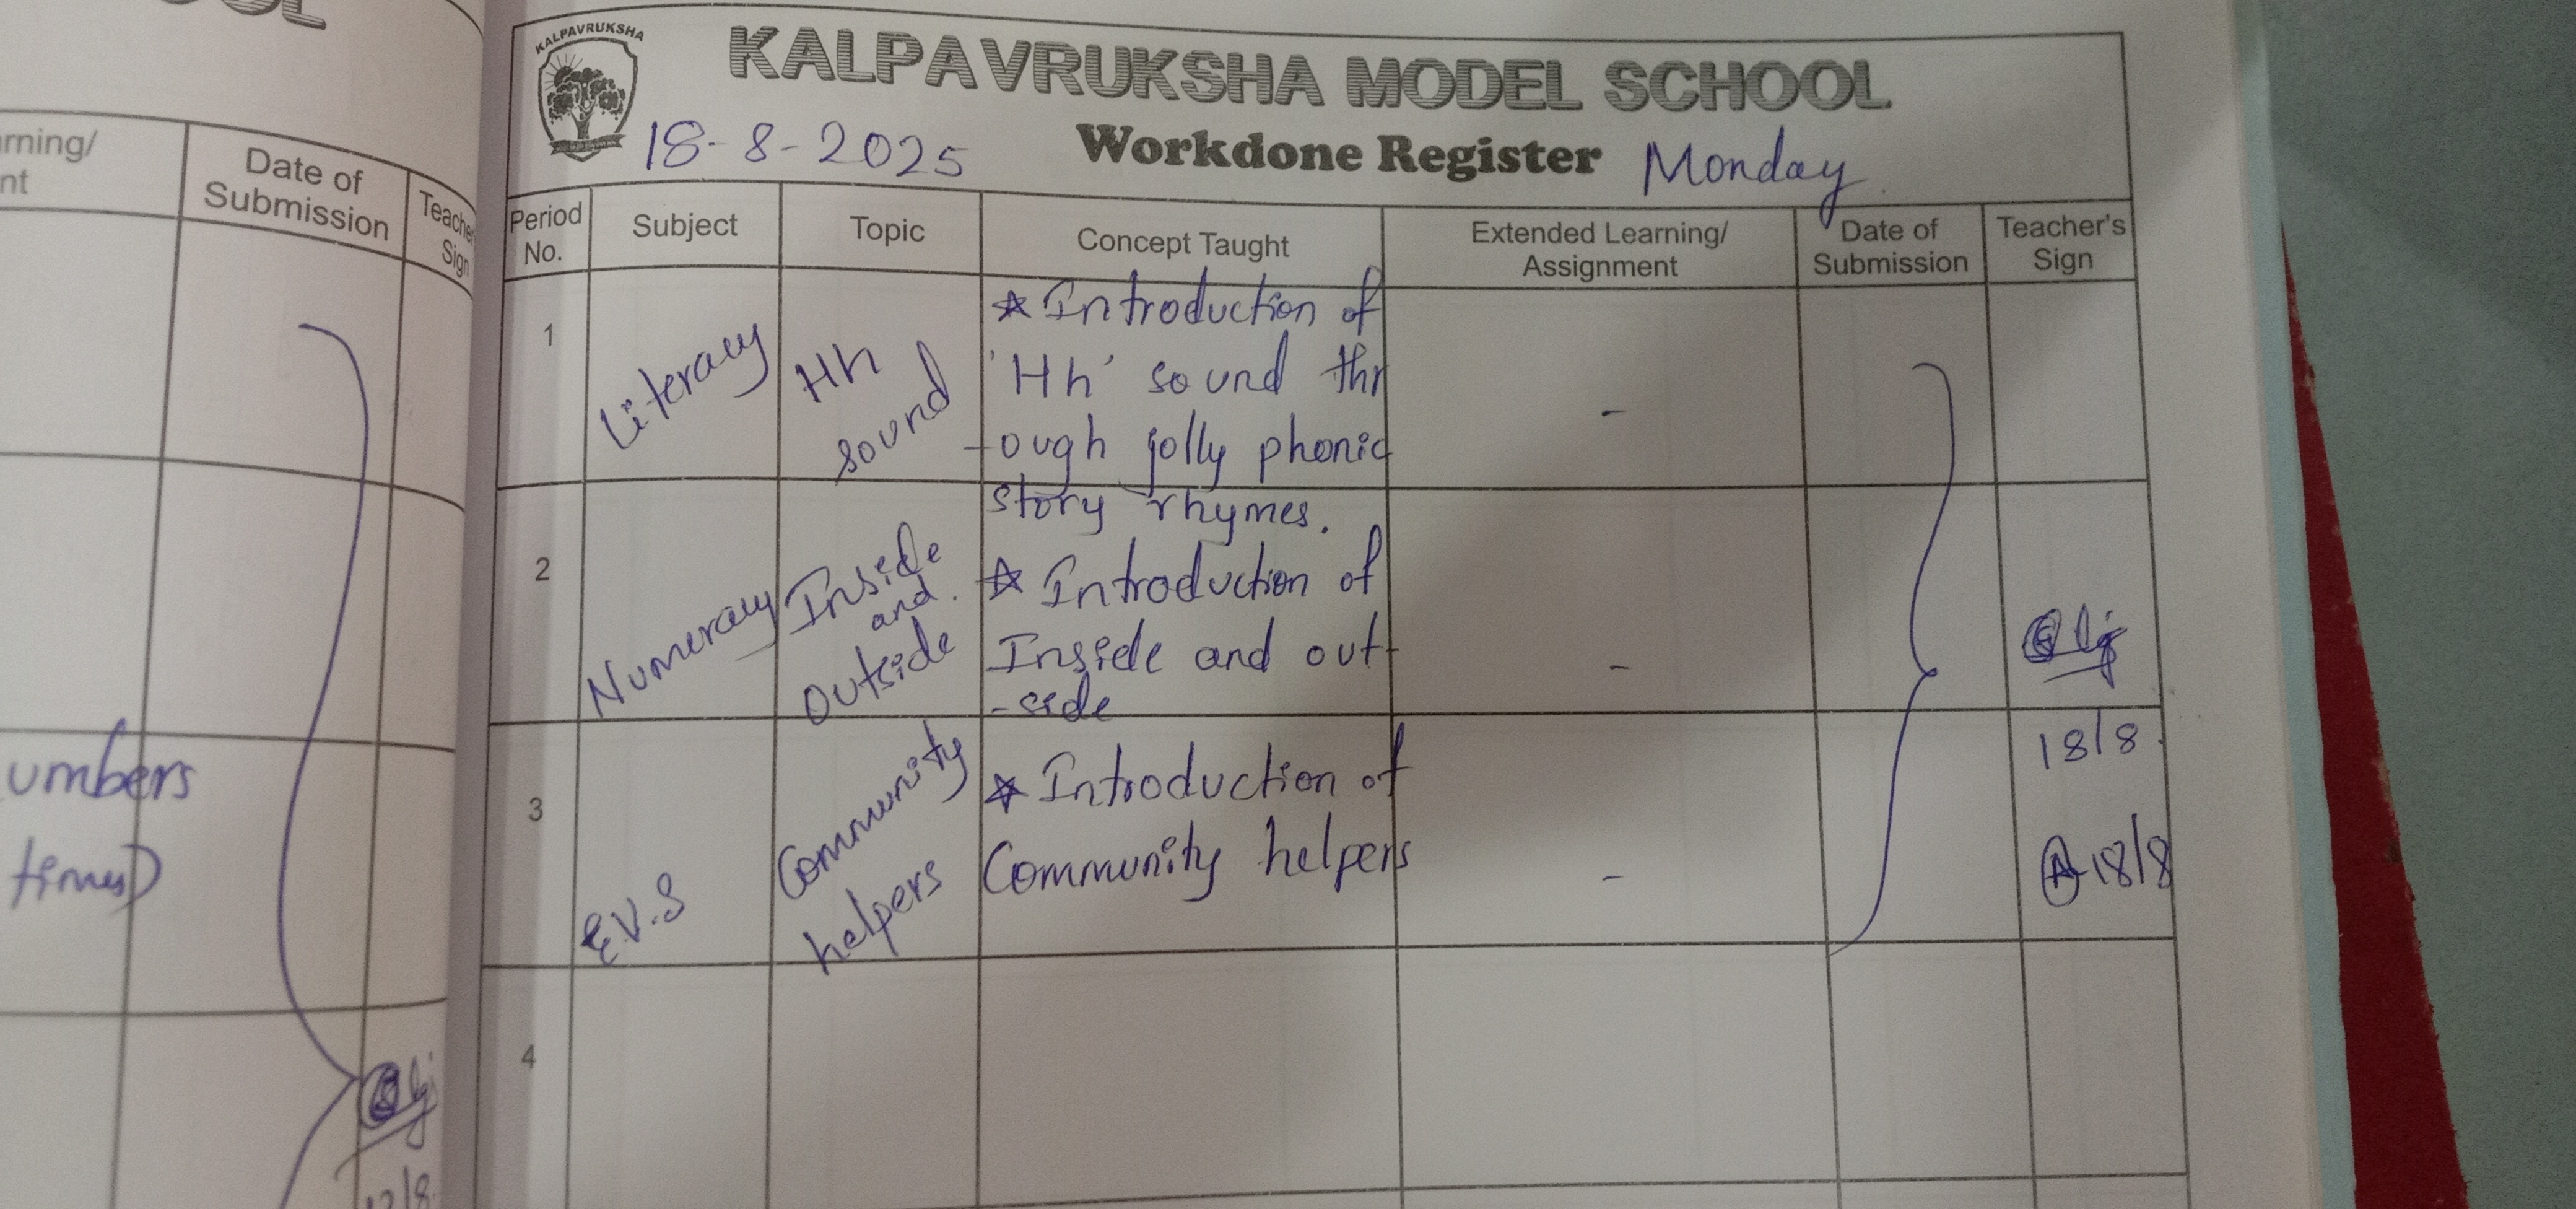 OL
rning/
nt
Date of
Submission
Teacher
Sign
umbers
times)
KALPAVRUKSHA
KALPAVRUKSHA MODEL SCHOOL
18-8-2025 Workdone Register Monday
Period
No.
Subject
Topic
Concept Taught
Extended Learning/
Assignment
Date of
Submission
Teacher's
Sign
1
Literacy
Hh
sound
☆ Introduction of
'Hh' sound thr
-ough jolly phonic
story rhymes.
-
2
Numeracy
Inside
and
Outside
☆ Introduction of
Inside and out-
-side
-
18/8
3
E.V.S
Community
helpers
☆ Introduction of
Community helpers
-
18/8
4